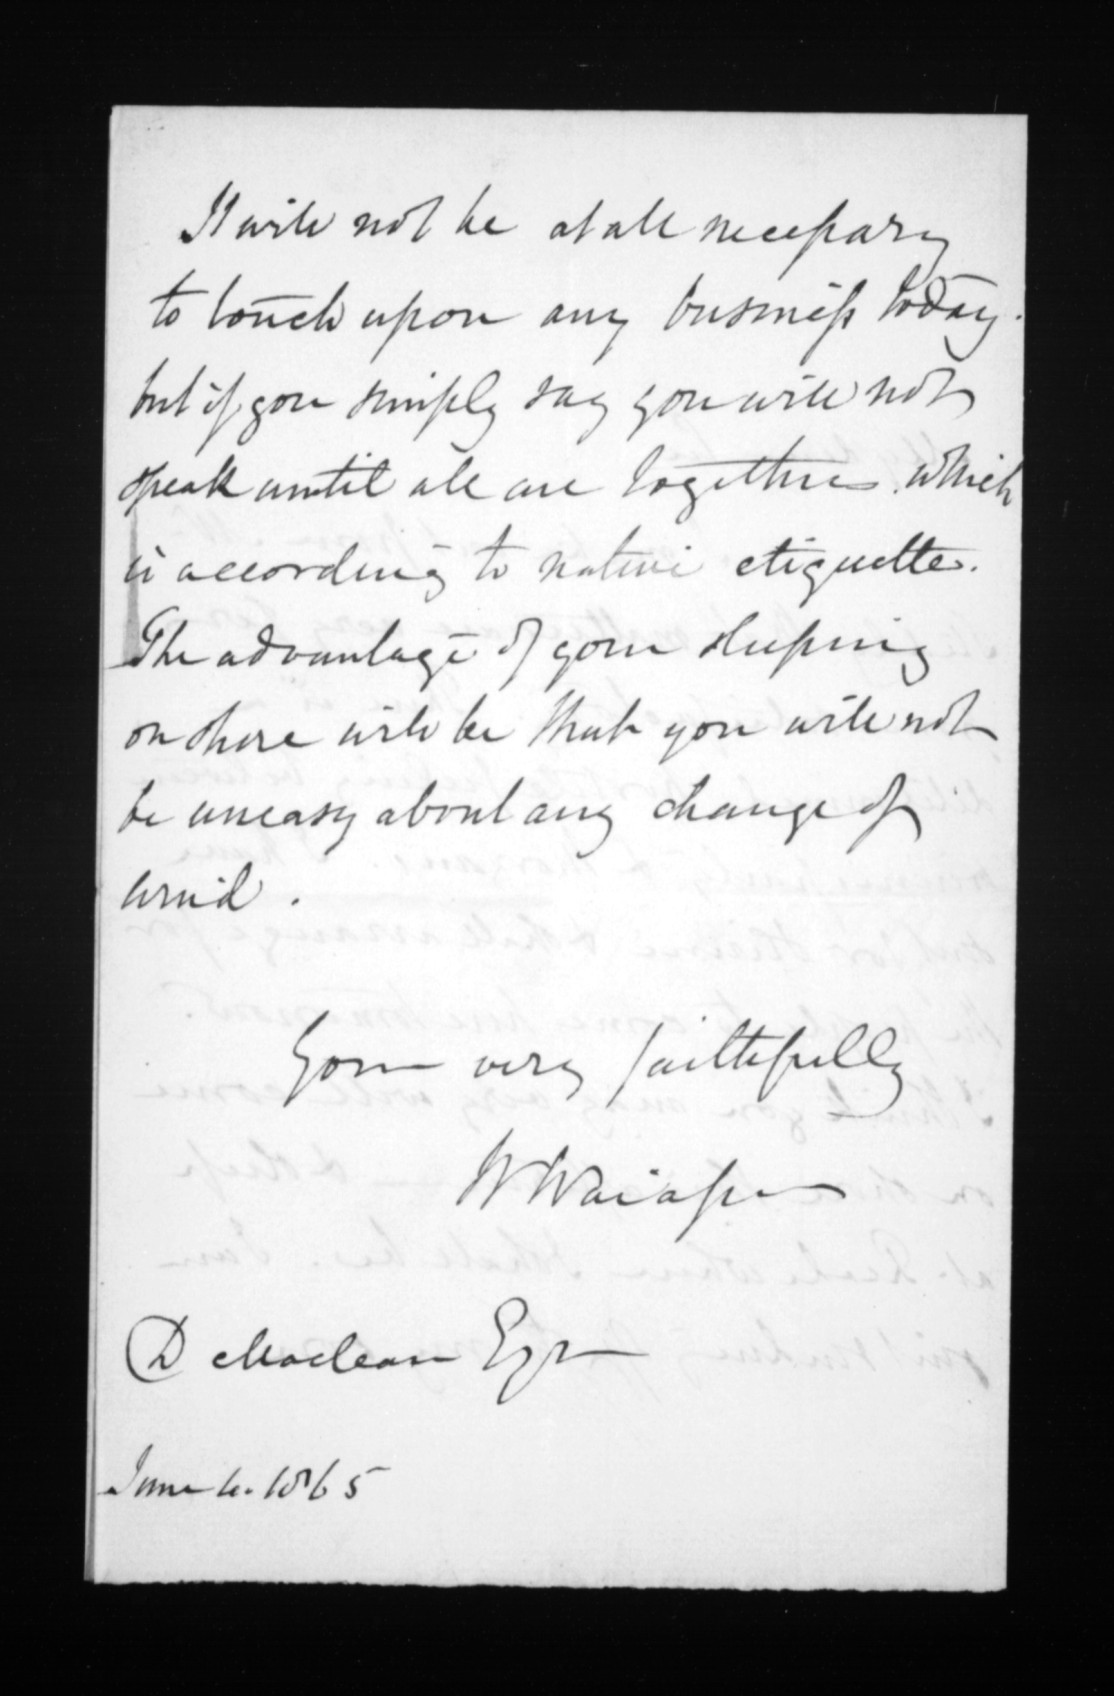 It will not be at all necessary
to touch upon any business today.
but if you simply say you will not
speak until all are together. which
is according to native etiquette.
The advantage of your sleeping
on shore will be that you will not
be uneasy about any change of
wind.
Yours very faithfully
W Waiapu
D Maclean Esqr
June 4. 1865